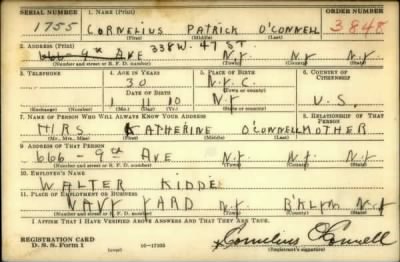 SERIAL NUMBER 1. NAME (Print) ORDER NUMBER
1755 CORNELIUS PATRICK O'CONNELL 3848
(First) (Middle) (Last)
2. ADDRESS (Print) 338 W. 47 ST.
666-9th AVE N.Y. N.Y
(Number and street or R. F. D. number) (Town) (County) (State)
3. TELEPHONE 4. AGE IN YEARS 5. PLACE OF BIRTH 6. COUNTRY OF CITIZENSHIP
30 N.Y.C.
DATE OF BIRTH (Town or county)
1 11 10 N.Y U.S.
(Exchange) (Number) (Mo.) (Day) (Yr.) (State or country)
7. NAME OF PERSON WHO WILL ALWAYS KNOW YOUR ADDRESS 8. RELATIONSHIP OF THAT PERSON
MRS KATHERINE O'CONNELL MOTHER
(Mr., Mrs., Miss) (First) (Middle) (Last)
9. ADDRESS OF THAT PERSON
666-9th AVE N.Y N.Y. N.Y
(Number and street or R. F. D. number) (Town) (County) (State)
10. EMPLOYER'S NAME
WALTER KIDDE
11. PLACE OF EMPLOYMENT OR BUSINESS
NAVY YARD B'KLYN N.Y
(Number and street or R. F. D. number) (Town) (County) (State)
I AFFIRM THAT I HAVE VERIFIED ABOVE ANSWERS AND THAT THEY ARE TRUE.
REGISTRATION CARD
D. S. S. Form 1 (over) 16-17105 Cornelius O'Connell
(Registrant's signature)